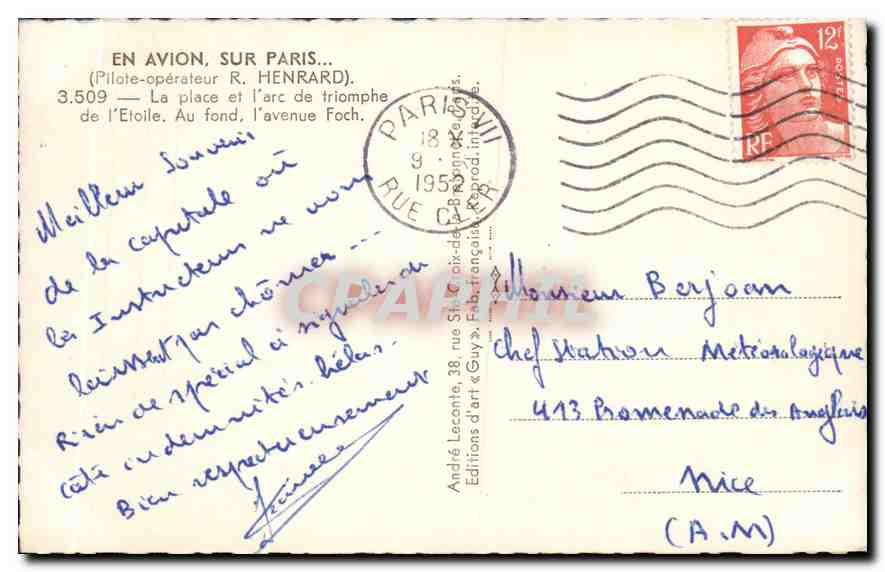 EN AVION, SUR PARIS...
(Pilote-opérateur R. HENRARD).
3.509 — La place et l'arc de triomphe
de l'Etoile. Au fond, l'avenue Foch.
Meilleur souvenir
de la capitale où
les Instructeurs ne nous
laissent pas chômer...
Rien de spécial à signaler du
côté indemnités hélas.
Bien respectueusement
PARIS VII
18
9
195
RUE CLER
12F
POSTES
RF
André Leconte, 38, rue Ste-Croix-de-la-Bretonnerie, Paris.
Editions d'art «Guy». Fab. française. Reprod. interdite.
CPAPHIL
Monsieur Berjoan
Chef Station Météorologique
413 Promenade des Anglais
Nice
(A.M)